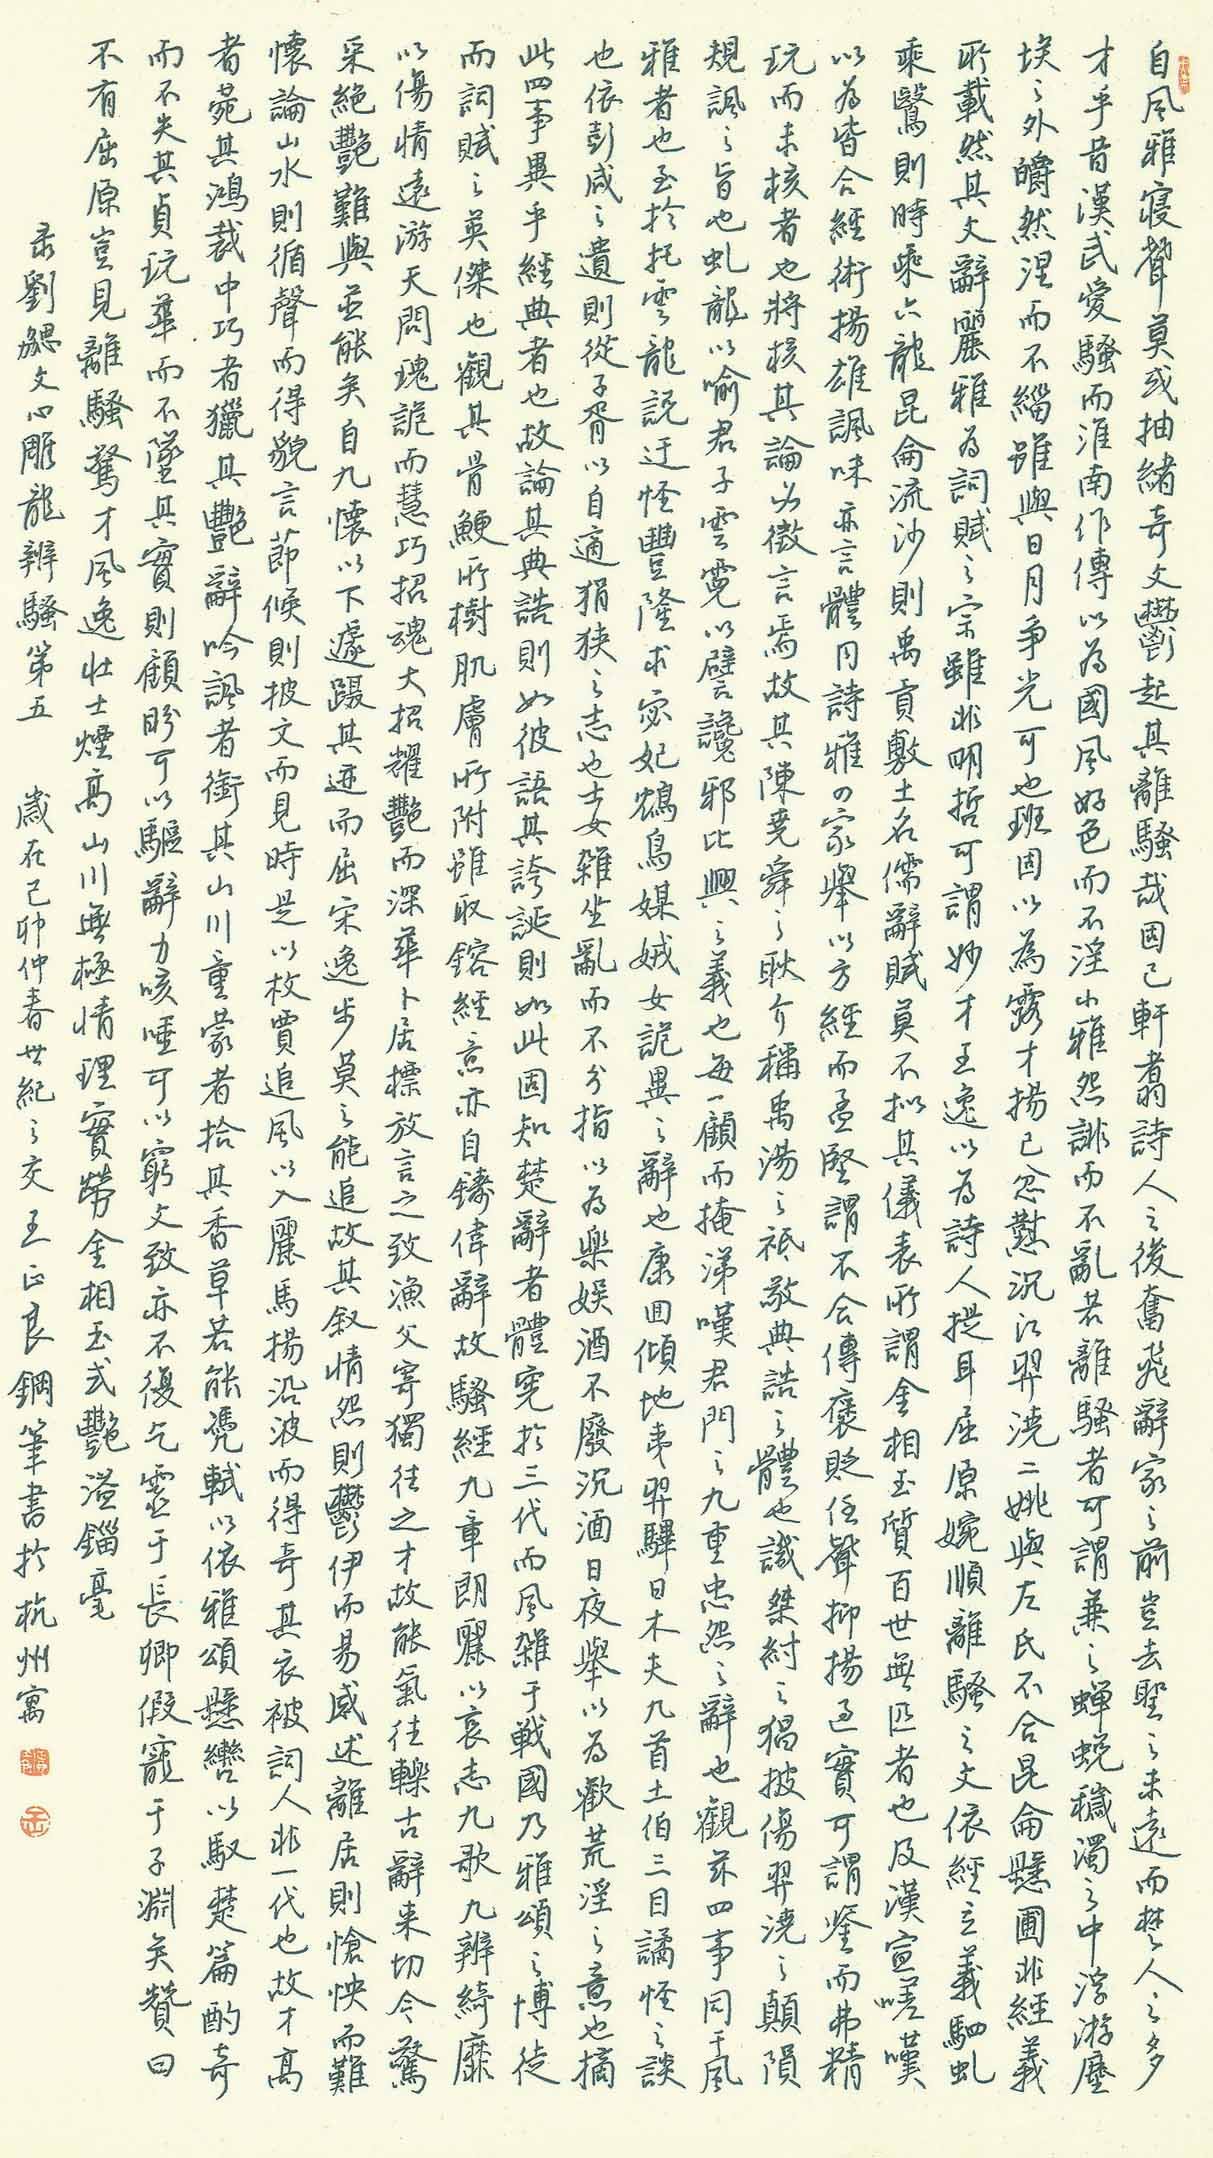 自風雅寢聲莫或抽緒奇文鬱起其離騷哉固已軒翥詩人之後奮飛辭家之前豈去聖之未遠而楚人之多
才乎昔漢武愛騷而淮南作傳以為國風好色而不淫小雅怨誹而不亂若離騷者可謂兼之蟬蛻穢濁之中浮游塵
埃之外皭然涅而不緇雖與日月爭光可也班固以為露才揚己忿懟沉江羿澆二姚與左氏不合昆侖懸圃非經義
所載然其文辭麗雅為詞賦之宗雖非明哲可謂妙才王逸以為詩人提耳屈原婉順離騷之文依經立義駟虬
乘鷖則時乘六龍昆侖流沙則禹貢敷土名儒辭賦莫不擬其儀表所謂金相玉質百世無匹者也及漢宣嗟嘆
以為皆合經術揚雄諷味亦言體同詩雅四家舉以方經而孟堅謂不合傳褒貶任聲抑揚過實可謂鑒而弗精
玩而未核者也將核其論必徵言焉故其陳堯舜之耿介稱禹湯之祗敬典誥之體也譏桀紂之猖披傷羿澆之顛隕
規諷之旨也虬龍以喻君子雲霓以譬讒邪比興之義也每一顧而掩涕嘆君門之九重忠怨之辭也觀茲四事同于風
雅者也至於托雲龍說迂怪豐隆求宓妃鴆鳥媒娀女詭異之辭也康回傾地夷羿彃日木夫九首土伯三目譎怪之談
也依彭咸之遺則從子胥以自適狷狹之志也士女雜坐亂而不分指以為樂娛酒不廢沉湎日夜舉以為歡荒淫之意也摘
此四事異乎經典者也故論其典誥則如彼語其誇誕則如此固知楚辭者體憲於三代而風雜于戰國乃雅頌之博徒
而詞賦之英傑也觀其骨鯁所樹肌膚所附雖取鎔經意亦自鑄偉辭故騷經九章朗麗以哀志九歌九辨綺靡
以傷情遠游天問瑰詭而慧巧招魂大招耀艷而深華卜居標放言之致漁父寄獨往之才故能氣往轢古辭來切今驚
采絕艷難與並能矣自九懷以下遽躡其迹而屈宋逸步莫之能追故其叙情怨則鬱伊而易感述離居則愴怏而難
懷論山水則循聲而得貌言節候則披文而見時是以枚賈追風以入麗馬揚沿波而得奇其衣被詞人非一代也故才高
者菀其鴻裁中巧者獵其艷辭吟諷者銜其山川童蒙者拾其香草若能憑軾以依雅頌懸轡以馭楚篇酌奇
而不失其貞玩華而不墜其實則顧盼可以驅辭力咳唾可以窮文致亦不復乞靈于長卿假寵于子淵矣贊曰
不有屈原豈見離騷驚才風逸壯士煙高山川無極情理實勞金相玉式艷溢錙毫
录劉勰文心雕龍辨騷第五 歲在己卯仲春世紀之交王正良鋼筆書於杭州寓